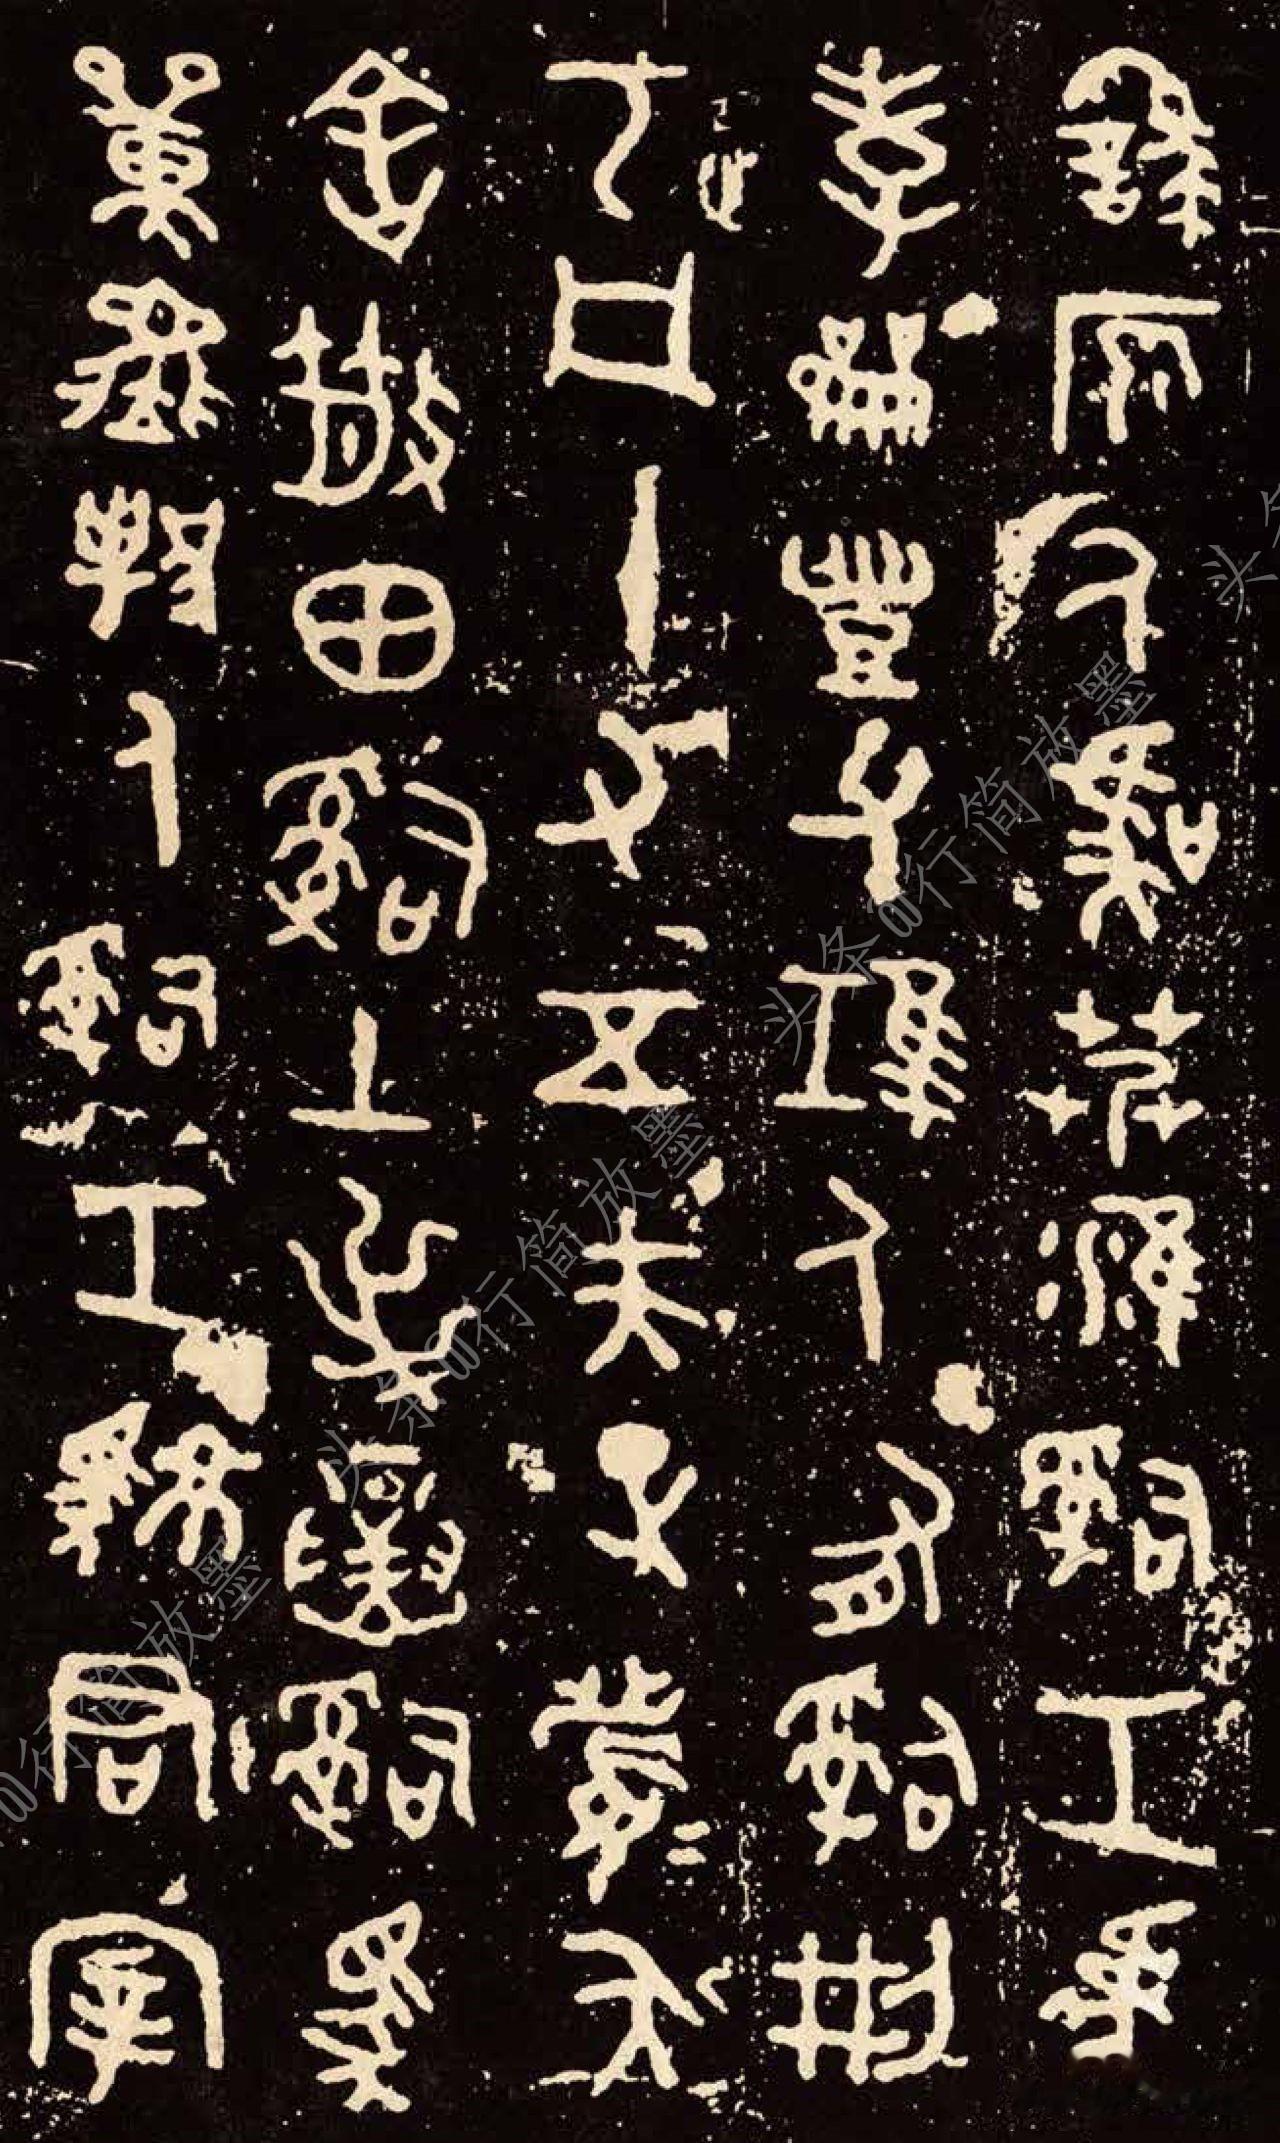 繇原人虞艿淮𤔲工虎
孝龠豐父𿀀人有𤔲刑
丂凡十又五夫正眉夨
舍散田𤔲土屰寅𤔲馬
單邦人𤔲工君宰